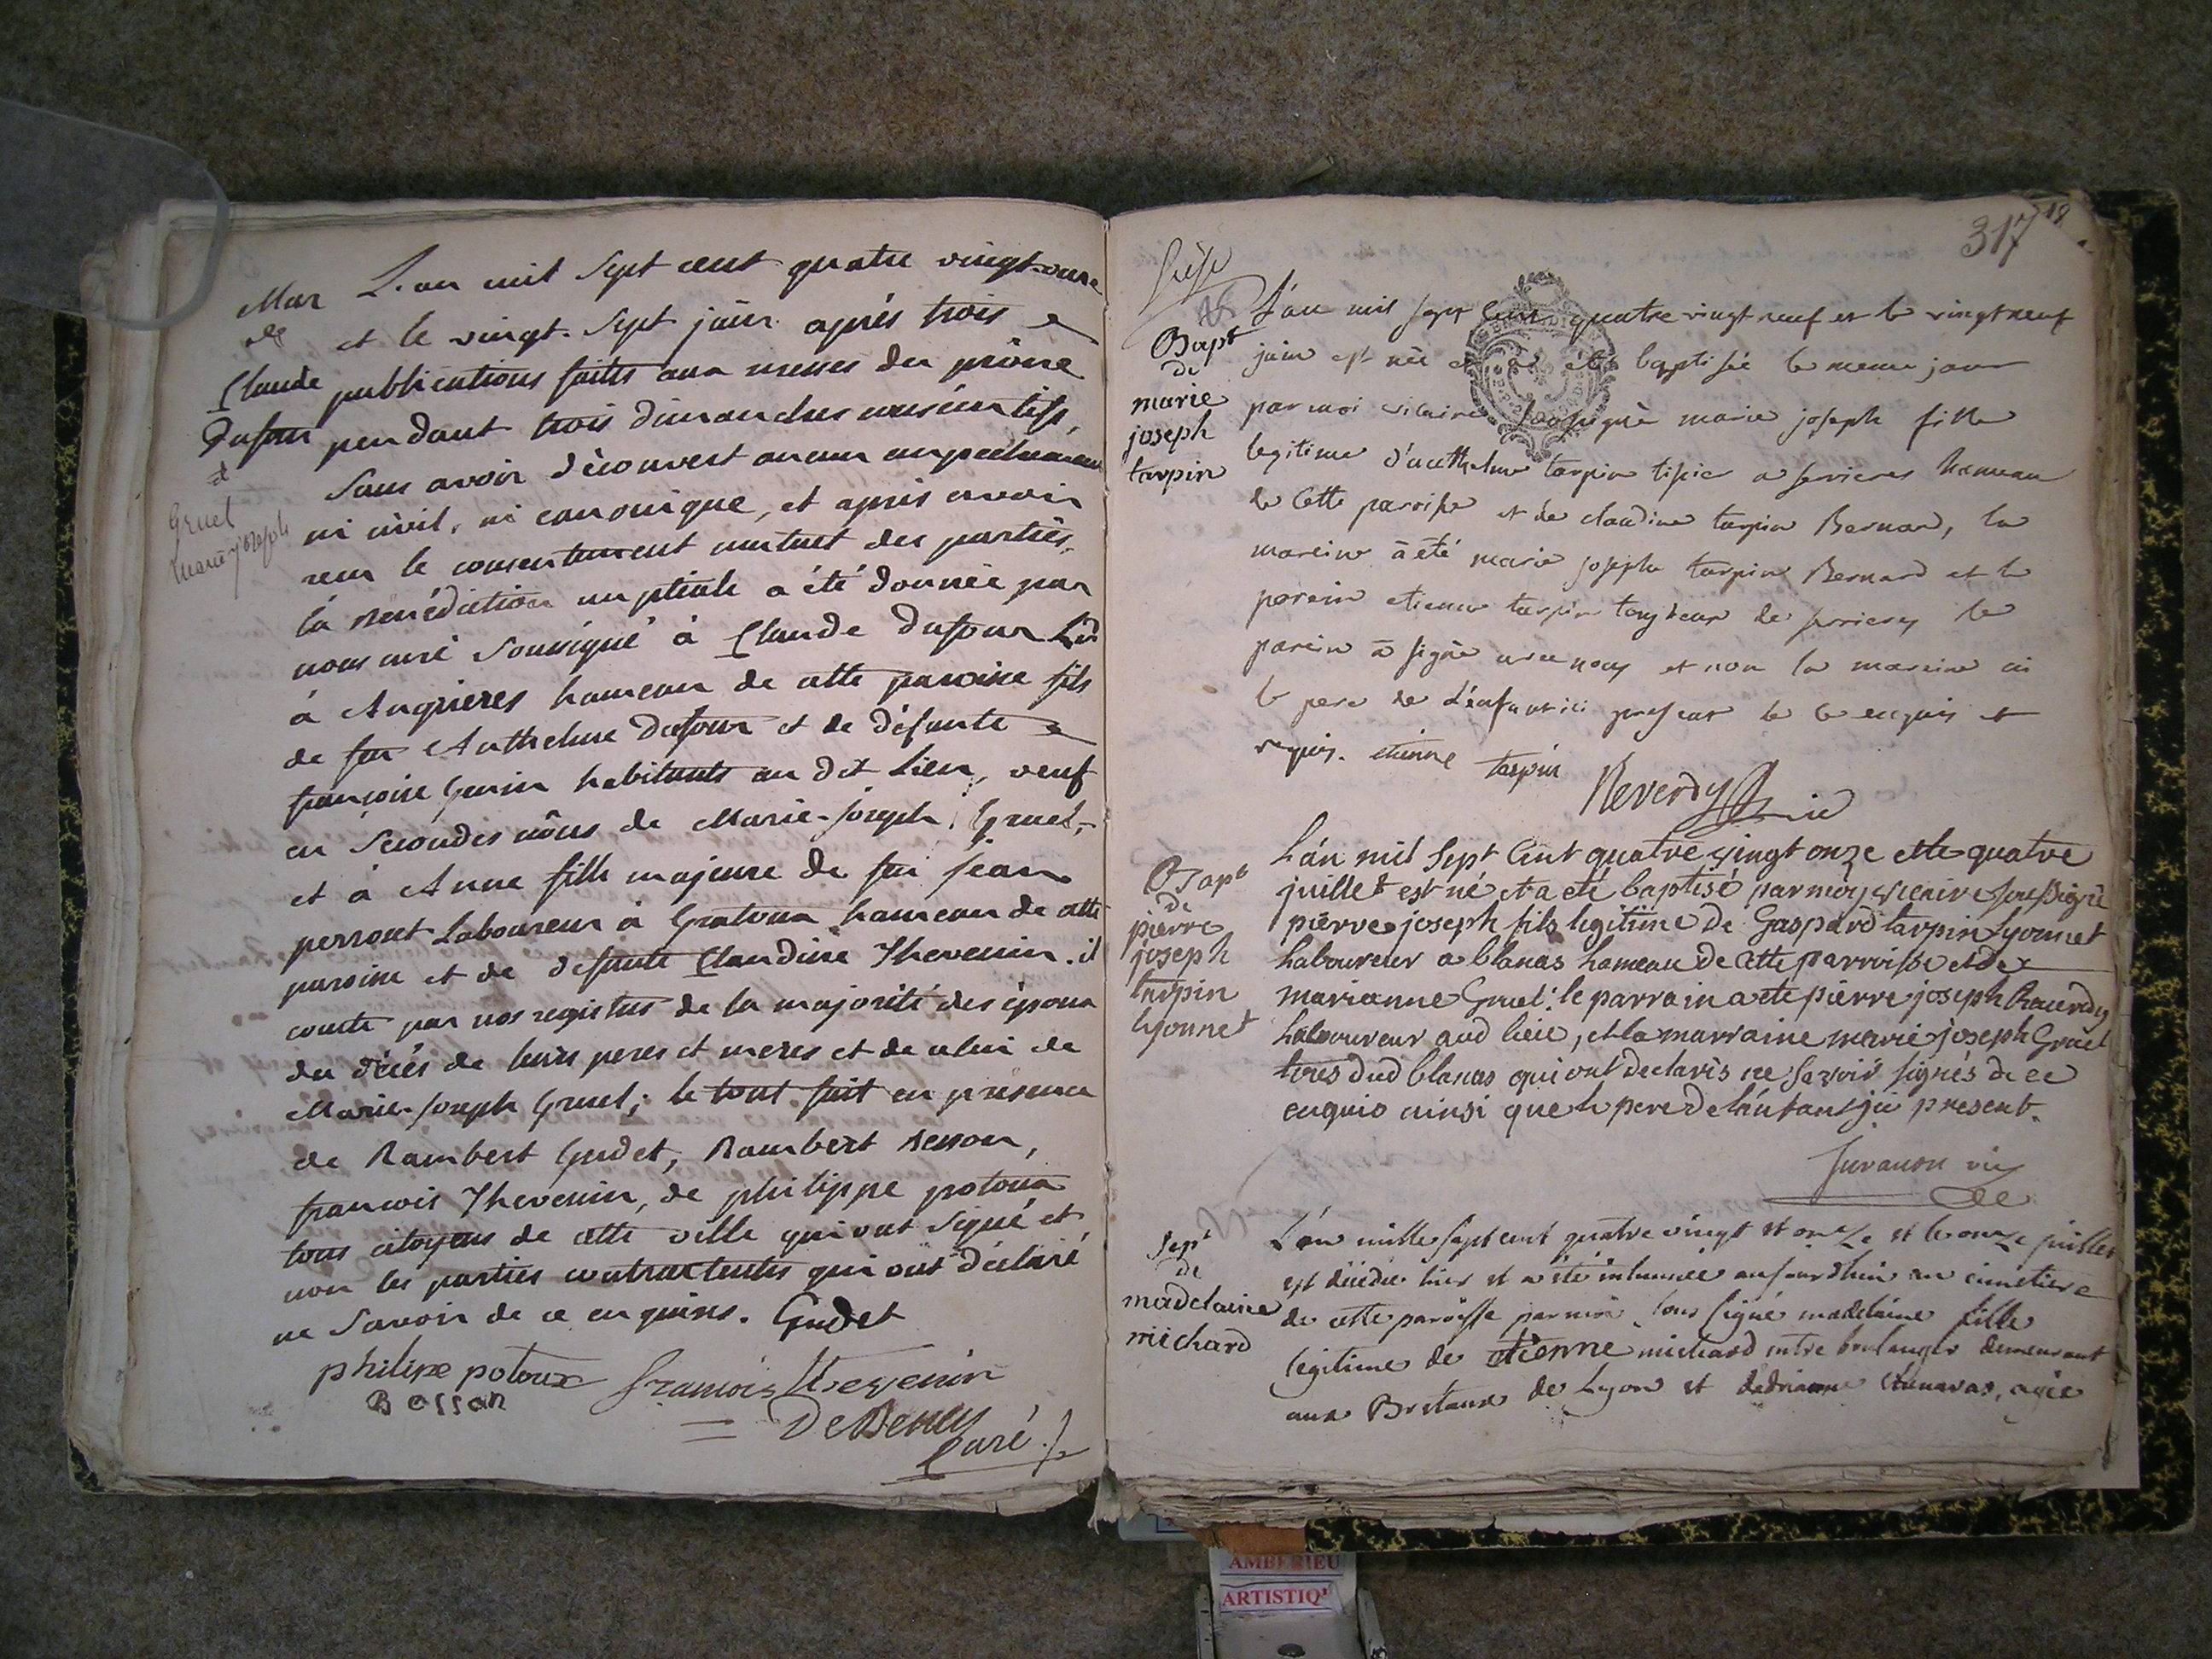 Mar
de
Claude
Dufour
et
Gruel
marie joseph
L'an mil sept cent quatre vingt-onze
et le vingt-sept juin après trois
publications faites aux messes du prône
pendant trois dimanches consécutifs,
sans avoir découvert aucun empechement
ni civil, ni canonique, et après avoir
reçu le consentement mutuel des parties,
la bénédiction nuptiale a été donnée par
nous curé soussigné à Claude Dufour Lab
à Angrieres hameau de cette paroisse fils
de feu Anthelme Dufour et de défunte
françoise Genin habitants au dit Lieu, veuf
en secondes nôces de Marie-joseph Gruel,
et à Anne fille majeure de feu jean
perrout Laboureur à Gratoux hameau de cette
paroisse et de défunte Claudine Thevenin. il
conste par nos registres de la majorité des époux
du décès de leurs peres et meres et de celui de
Marie-joseph Gruel; le tout fait en présence
de Rambert Gudet, Rambert Besson,
francois Thevenin, de philippe potoux
tous citoyens de cette ville qui ont signé et
non les parties contractantes qui ont déclaré
ne savoir de ce enquises. Gudet
philipe potoux françois thevenin
Besson
Curé
317
18
Bapt
de
marie
joseph
tarpin
L'an mil sept cent quatre vingt neuf et le vingt neuf
juin est née et a été baptisée le meme jour
par moi vicaire soussigné marie joseph fille
legitime d'anthelme tarpin tisier a serrieres hameau
de cette parroisse et de claudine tarpin Bernard, la
mareine à été marie joseph tarpin Bernard et le
parein etienne tarpin de serrieres le
parein a signé avec nous et non la mareine ni
le pere de l'enfant ici present de ce enquis et
requis. etienne tarpin Reverdy vic
Bapt
de
pierre
joseph
tarpin
lyonnet
L'an mil sept cent quatre vingt onze et le quatre
juillet est né et a eté baptisé par moy vicaire soussigné
pierre joseph fils legitime de Gaspard tarpin Lyonnet
Laboureur a blanas hameau de cette parroisse et de
marianne Gruel: le parrain a ete pierre joseph Raverdy
Laboureur aud lieu, et la marraine marie joseph Gruel
tous dud blanas qui ont declarés ne sçavoir signés de ce
enquis ainsi que le pere de l'enfant ici present.
Juvanon vic
Sept
de
madelaine
michard
L'an mille sept cent quatre vingt et onze et le onze juillet
est décédée hier et a été inhumée aujourdhui au cimetiere
de cette paroisse par moi sous signé madelaine fille
legitime de etienne michard mtre boulanger demeurant
aux Brotaux de Lyon et dadrianne, agée
AMBERIEU
ARTISTIQ'